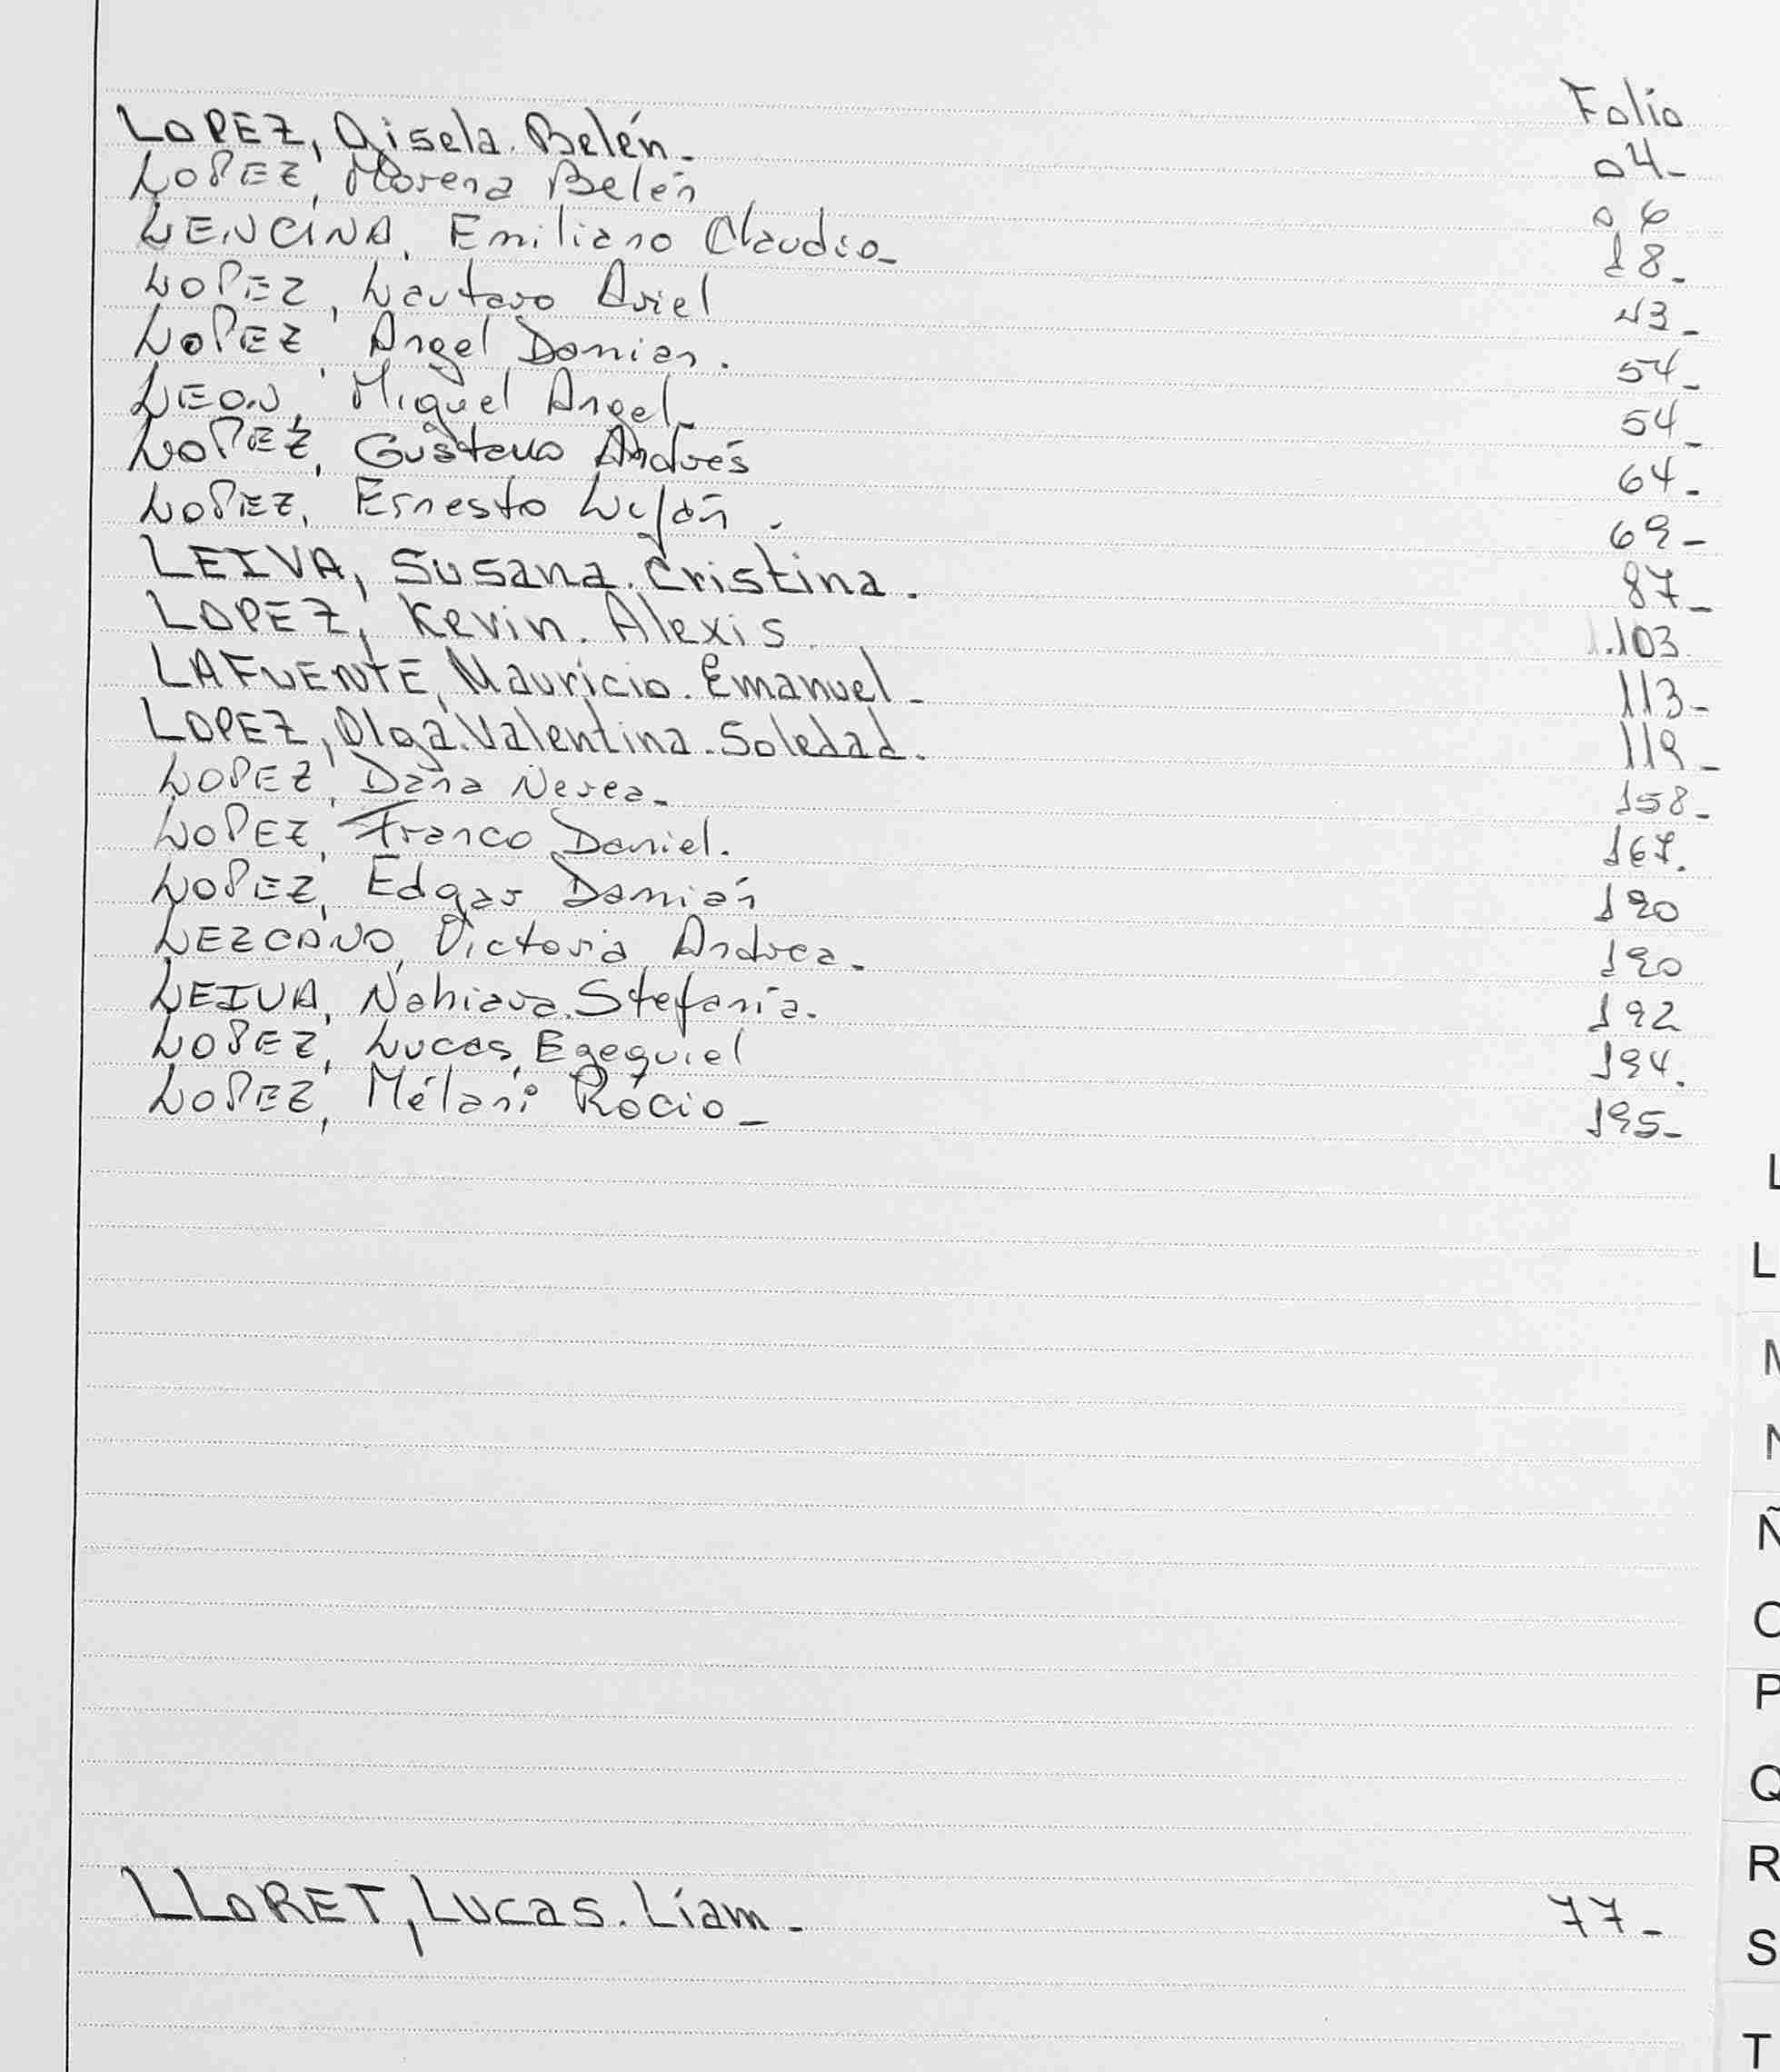 Folio
LOPEZ, Gisela. Belén. 04-
LOPEZ, Morena Belén 06
LENCINA, Emiliano Claudio- 18-
LOPEZ, Lautaro Ariel 43-
LOPEZ, Angel Damian. 54-
LEON, Miguel Angel- 54-
LOPEZ, Gustavo Andrés 64-
LOPEZ, Ernesto Luján. 69-
LEIVA, Susana. Cristina. 87-
LOPEZ, Kevin. Alexis. 103
LAFUENTE, Mauricio. Emanuel- 113-
LOPEZ, Olga. Valentina. Soledad. 119-
LOPEZ, Dana Nerea- 158-
LOPEZ, Franco Daniel. 167.
LOPEZ, Edgar Damián 190
LEZCANO, Victoria Andrea- 190
LEIVA, Nahiara Stefanía. 192
LOPEZ, Lucas Ezequiel 194.
LOPEZ, Mélani Rocio- 195-
L
L
M
N
Ñ
O
P
Q
R
LLORET, Lucas. Liam- 77-
S
T